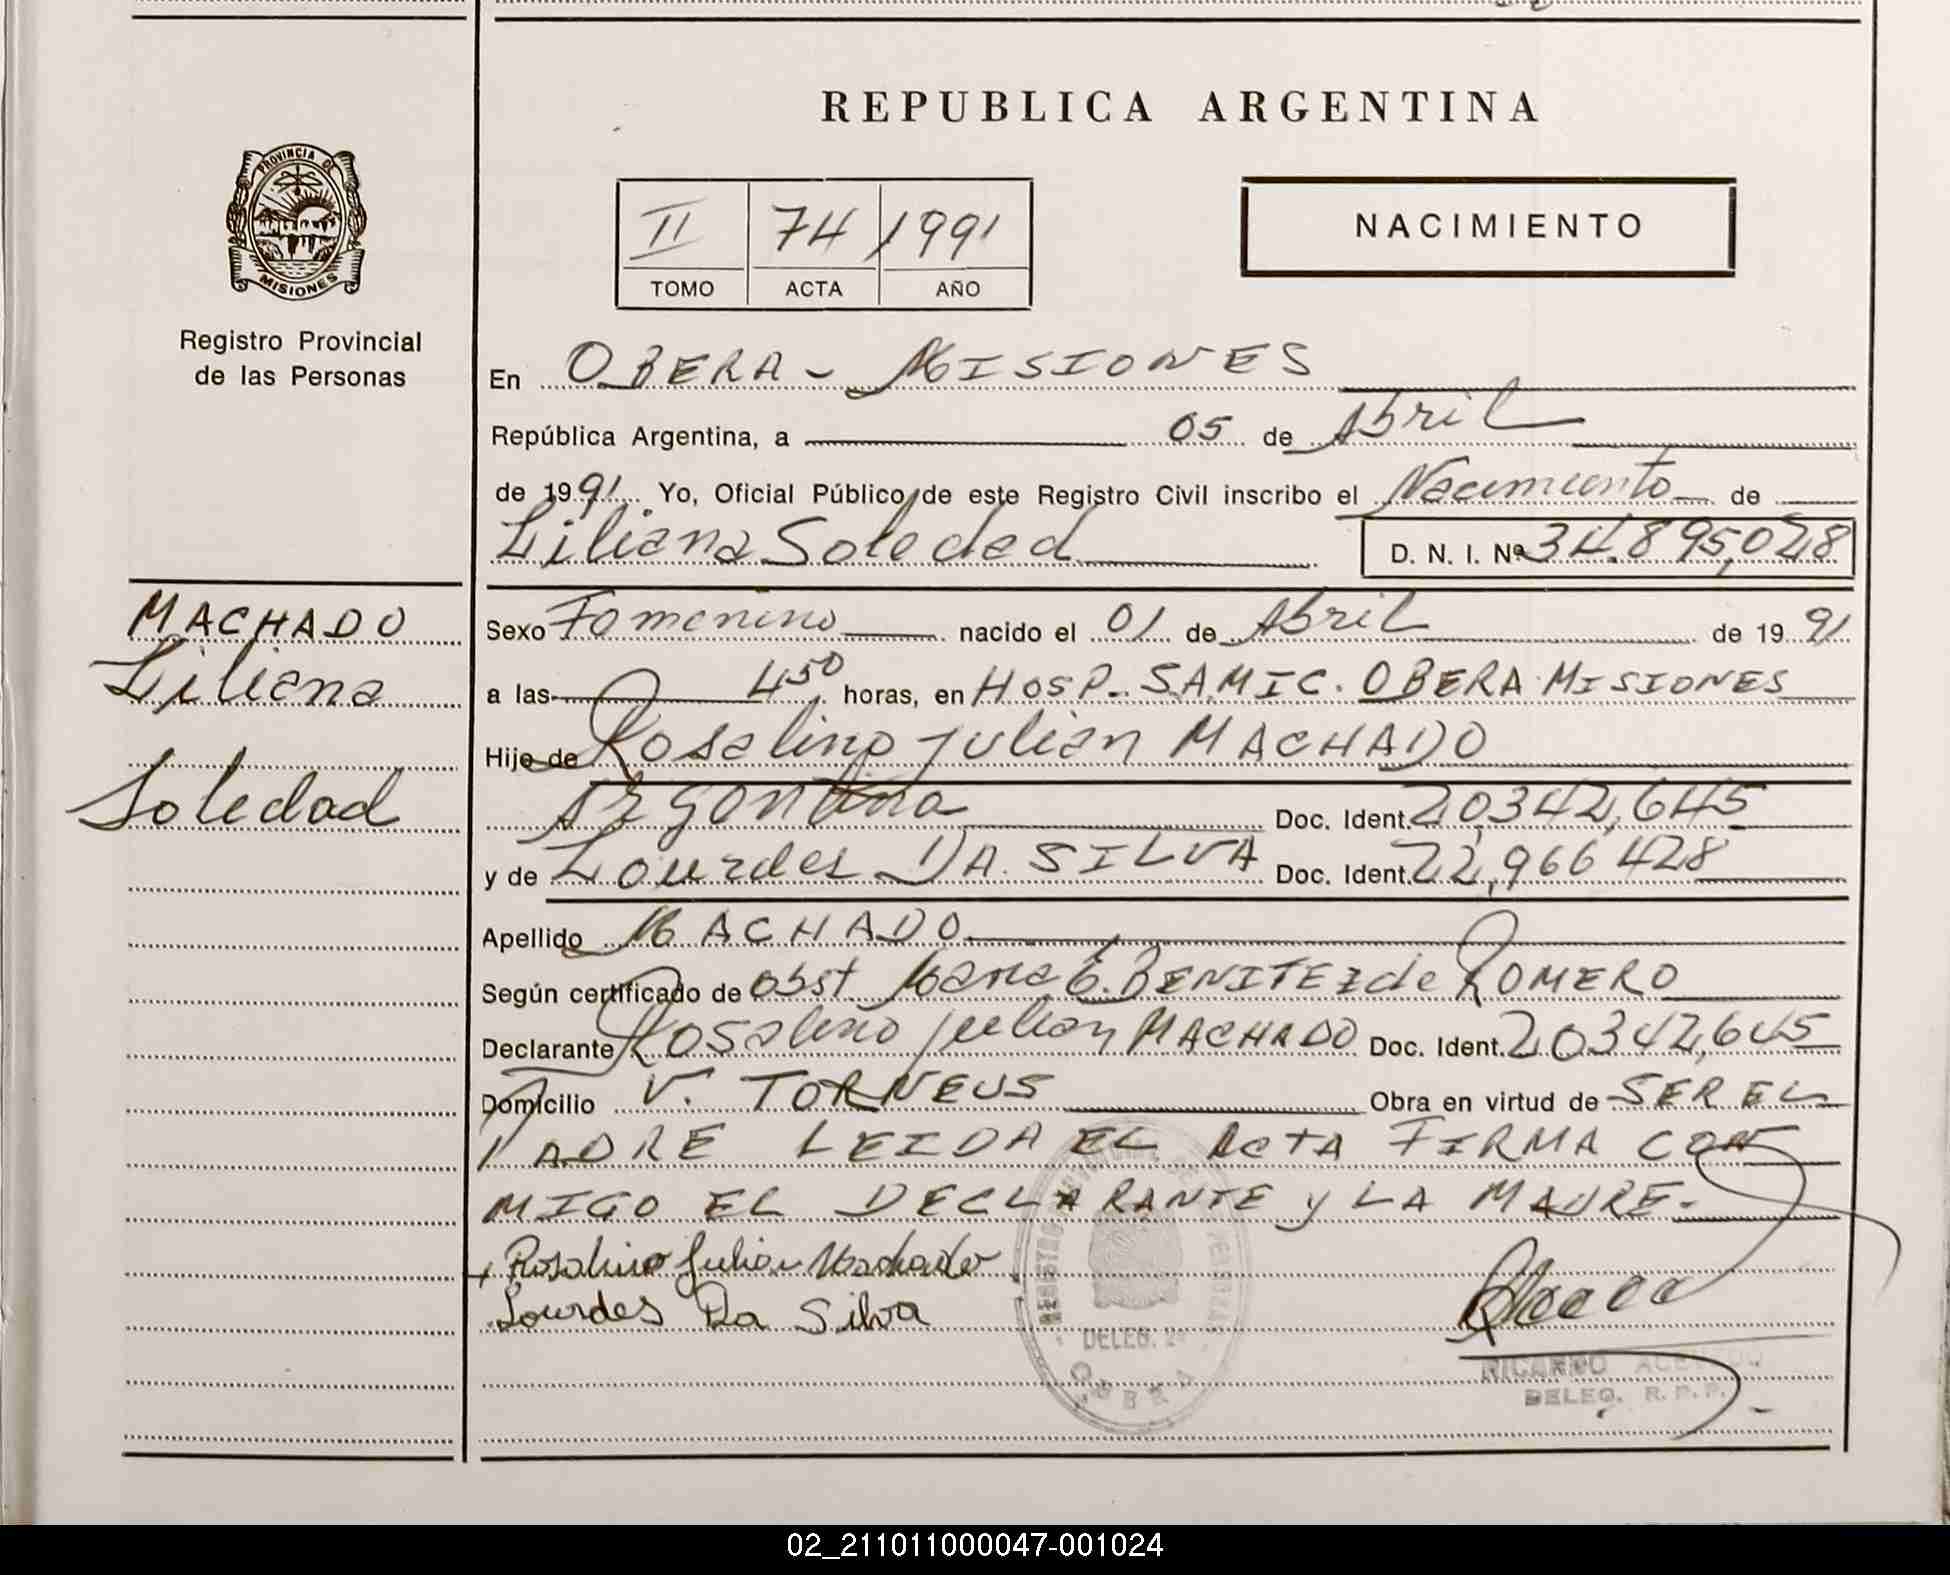 REPUBLICA ARGENTINA
PROVINCIA DE
MISIONES
Registro Provincial
de las Personas
II 74 1991
TOMO ACTA AÑO
NACIMIENTO
En OBERA - MISIONES
República Argentina, a 05 de Abril
de 1991 Yo, Oficial Público de este Registro Civil inscribo el Nacimiento de
Liliana Soledad D. N. I. Nº 34.895,028
MACHADO
Liliana
Soledad
Sexo Femenino nacido el 01 de Abril de 1991
a las 4 50 horas, en HOSP. SAMIC. OBERA MISIONES
Hijo de Rosalino Julian MACHADO
Argentina Doc. Ident. 20,342,645
y de Lourdes DA SILVA Doc. Ident. 22,966 428
Apellido MACHADO
Según certificado de obst E. BENITEZ de ROMERO
Declarante Rosalino Julian MACHADO Doc. Ident. 20342,645
Domicilio V. TORNEUS Obra en virtud de SER EL
PADRE LEIDA EL ACTA FIRMA CON
MIGO EL DECLARANTE y LA MADRE-
Rosalino Julian Machado
Lourdes Da Silva
REGISTRO
DELEG. 2ª
OBERA
RICARDO
DELEG. R. P. P.
02_211011000047-001024